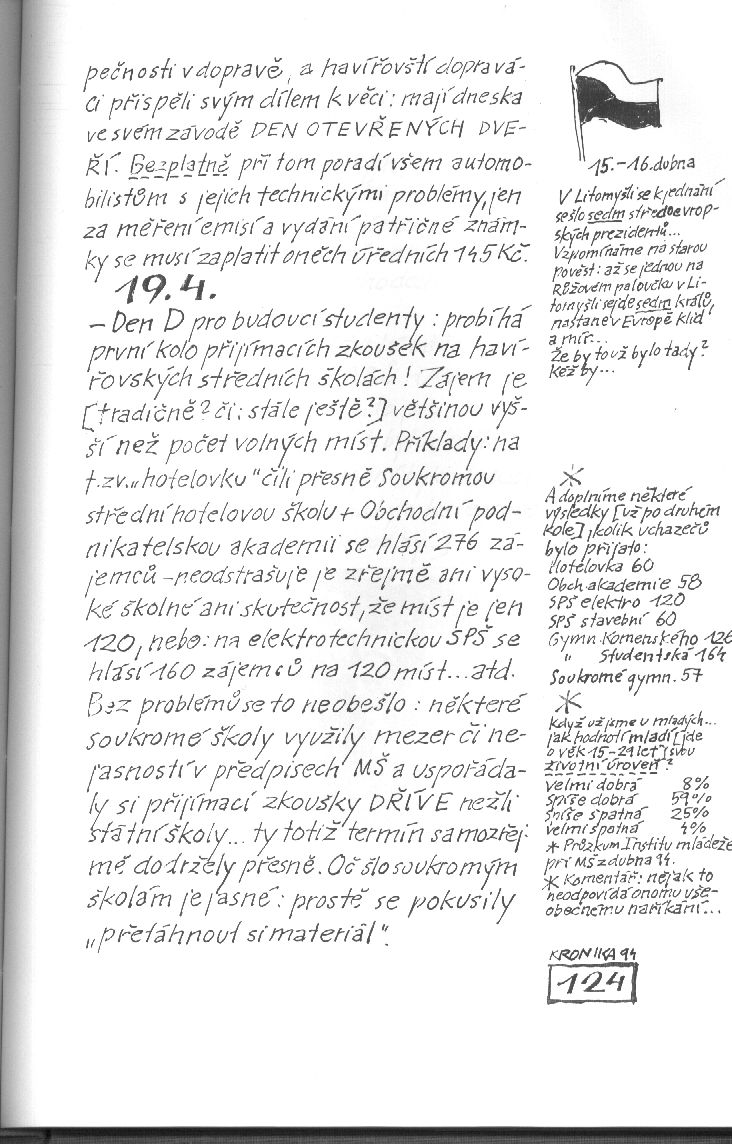 pečnosti v dopravě, a havířovští dopravá-
ci přispěli svým dílem k věci: mají dneska
ve svém závodě DEN OTEVŘENÝCH DVE-
ŘÍ. Bezplatně při tom poradí všem automo-
bilistům s jejich technickými problémy, jen
za měření emisí a vydání patřičné znám-
ky se musí zaplatit oněch úředních 145 Kč.
19. 4.
– Den D pro budoucí studenty: probíhá
první kolo přijímacích zkoušek na haví-
řovských středních školách! Zájem je
[tradičně? či: stále ještě?] většinou vyš-
ší než počet volných míst. Příklady: na
t.zv. „hotelovku" čili přesně Soukromou
střední hotelovou školu + Obchodní pod-
nikatelskou akademii se hlásí 276 zá-
jemců – neodstrašuje je zřejmě ani vyso-
ké školné ani skutečnost, že míst je jen
120, nebo: na elektrotechnickou SPŠ se
hlásí 160 zájemců na 120 míst... atd.
Bez problémů se to neobešlo: některé
soukromé školy využily mezer či ne-
jasností v předpisech MŠ a uspořáda-
ly si přijímací zkoušky DŘÍVE nežli
státní školy... ty totiž termín samozřej-
mě dodržely přesně. Oč šlo soukromým
školám je jasné: prostě se pokusily
„přetáhnout si materiál".
15.–16. dubna
V Litomyšli se k jednání
sešlo sedm středoevrop-
ských prezidentů...
Vzpomínáme na starou
pověst: až se jednou na
Růžovém paloučku v Li-
tomyšli sejde sedm králů,
nastane v Evropě klid
a mír...
Že by to už bylo tady?
Kéž by...
*
A doplníme některé
výsledky [už po druhém
kole], kolik uchazečů
bylo přijato:
Hotelovka 60
Obch. akademie 58
SPŠ elektro 120
SPŠ stavební 60
Gymn. Komenského 126
" Studentská 164
Soukromé gymn. 57
*
Když už jsme u mladých...
jak hodnotí mladí [jde
o věk 15-29 let] svou
životní úroveň?
velmi dobrá 8%
spíše dobrá 59%
spíše špatná 25%
velmi špatná 4%
* Průzkum Institu mládeže
při MŠ z dubna 94.
* Komentář: nějak to
neodpovídá onomu vše-
obecnému naříkání...
KRONIKA 94
124